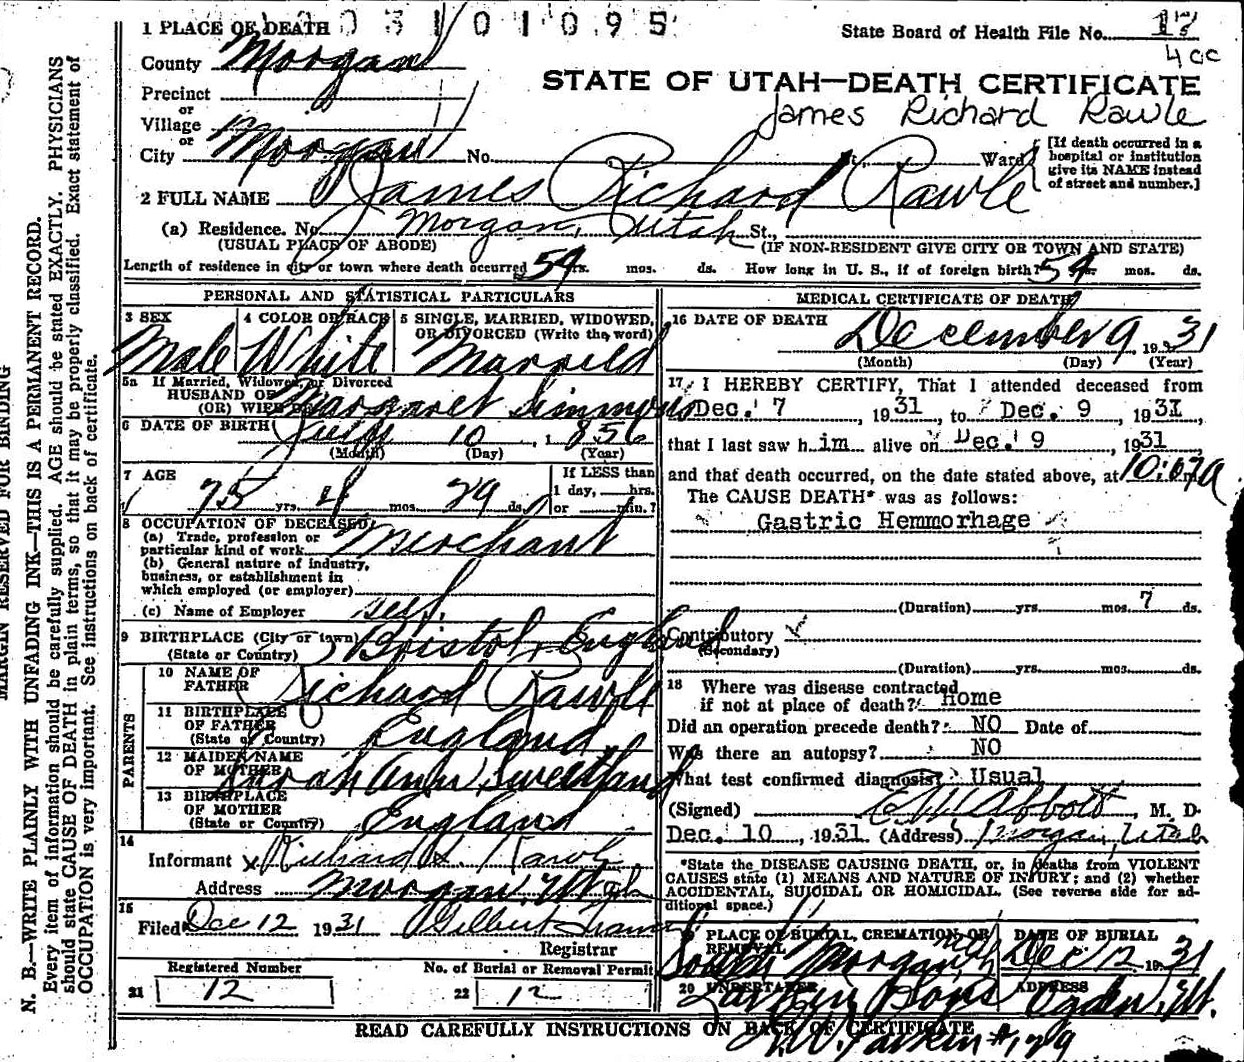 1 PLACE OF DEATH 03101095
State Board of Health File No. 17
4 cc
County Morgan
STATE OF UTAH—DEATH CERTIFICATE
Precinct
or
James Richard Rawle
Village
or
City Morgan No. St., Ward
[If death occurred in a hospital or institution give its NAME instead of street and number.]
2 FULL NAME James Richard Rawle
(a) Residence. No. Morgan, Utah St.,
(USUAL PLACE OF ABODE) (IF NON-RESIDENT GIVE CITY OR TOWN AND STATE)
Length of residence in city or town where death occurred 59 yrs. mos. ds. How long in U. S., if of foreign birth? 59 yrs. mos. ds.
PERSONAL AND STATISTICAL PARTICULARS
3 SEX 4 COLOR OR RACE 5 SINGLE, MARRIED, WIDOWED, OR DIVORCED (Write the word)
Male White Married
5a If Married, Widowed, or Divorced
HUSBAND OF
(OR) WIFE OF Margaret Simmons
6 DATE OF BIRTH July 10, 1856
(Month) (Day) (Year)
7 AGE If LESS than
75 yrs. 4 mos. 29 ds. 1 day, hrs.
or min.?
8 OCCUPATION OF DECEASED
(a) Trade, profession or
particular kind of work Merchant
(b) General nature of industry,
business, or establishment in
which employed (or employer)
(c) Name of Employer self.
9 BIRTHPLACE (City or town) Bristol, England
(State or Country)
PARENTS
10 NAME OF
FATHER Richard Rawle
11 BIRTHPLACE
OF FATHER England
(State or Country)
12 MAIDEN NAME
OF MOTHER Sarah Ann Sweetland
13 BIRTHPLACE
OF MOTHER England
(State or Country)
14
Informant x Richard S. Rawle
Address Morgan, Utah
15
Filed Dec 12 1931 Gilbert
Registrar
Registered Number No. of Burial or Removal Permit
21 12 22 12
MEDICAL CERTIFICATE OF DEATH
16 DATE OF DEATH December 9, 1931
(Month) (Day) (Year)
17 I HEREBY CERTIFY, That I attended deceased from
Dec. 7 1931, to Dec. 9 1931,
that I last saw h im alive on Dec. 9 1931
and that death occurred, on the date stated above, at 10:07a m.
The CAUSE DEATH* was as follows:
Gastric Hemmorhage
(Duration) yrs. mos. 7 ds.
Contributory
(Secondary)
(Duration) yrs. mos. ds.
18 Where was disease contracted
if not at place of death? Home
Did an operation precede death? NO Date of
Was there an autopsy? NO
What test confirmed diagnosis? Usual
(Signed) E. W. Abbott, M. D.
Dec. 10, 1931 (Address) Morgan, Utah
*State the DISEASE CAUSING DEATH, or, in deaths from VIOLENT
CAUSES state (1) MEANS AND NATURE OF INJURY; and (2) whether
ACCIDENTAL, SUICIDAL OR HOMICIDAL. (See reverse side for ad-
ditional space.)
19 PLACE OF BURIAL, CREMATION OR REMOVAL DATE OF BURIAL
South Morgan, Utah Dec 12 1931
20 UNDERTAKER ADDRESS
Larkin & Sons Ogden Ut.
READ CAREFULLY INSTRUCTIONS ON BACK OF CERTIFICATE
Larkin #129
MARGIN RESERVED FOR BINDING
N. B.—WRITE PLAINLY WITH UNFADING INK—THIS IS A PERMANENT RECORD.
Every item of information should be carefully supplied. AGE should be stated EXACTLY. PHYSICIANS
should state CAUSE OF DEATH in plain terms, so that it may be properly classified. Exact statement of
OCCUPATION is very important. See instructions on back of certificate.